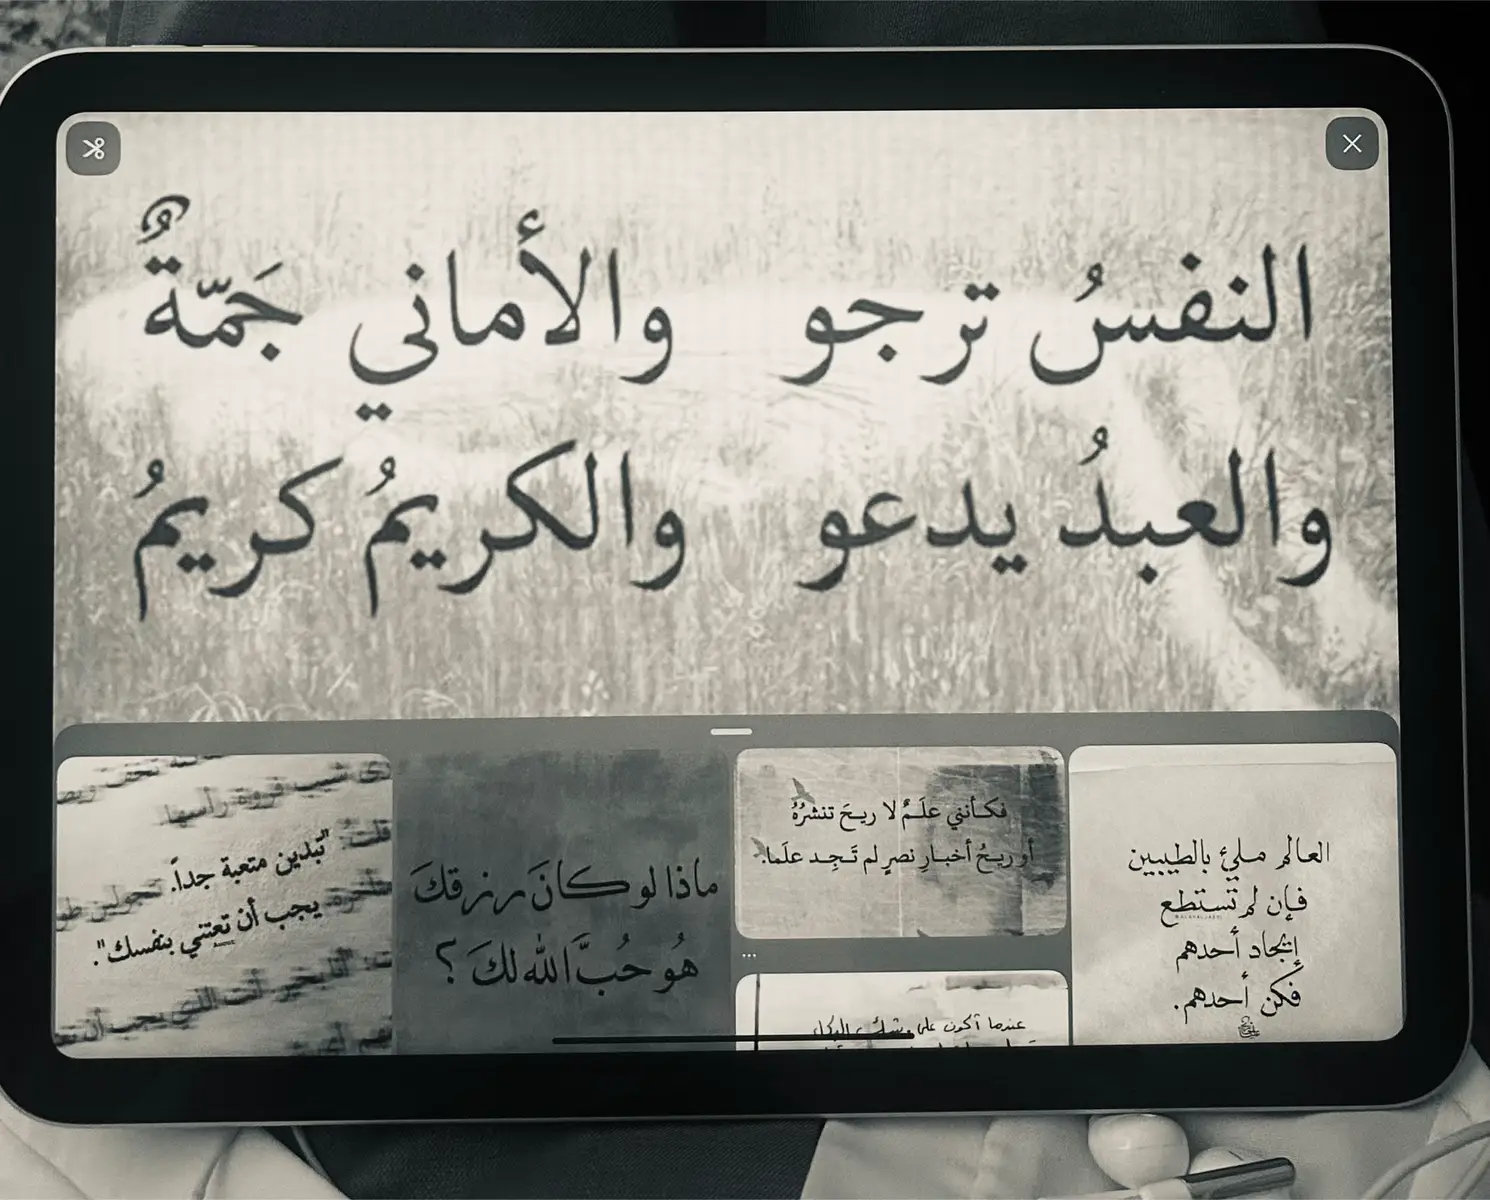 النفسُ ترجو والأماني جَمّةٌ
والعبدُ يدعو والكريمُ كريمُ
العالم مليئ بالطيبين
فإن لم تستطع
إيجاد أحدهم
فكن أحدهم.
فكأنني علَمٌ لا ريحَ تنشرُهُ
أو ريحُ أخبارِ نصرٍ لم تَجِد علَما.
عندما أكون على وشك
ماذا لو كانَ رزقكَ
هُو حُبَّ الله لكَ ؟
"تبدين متعبة جداً.
يجب أن تعتني بنفسك".